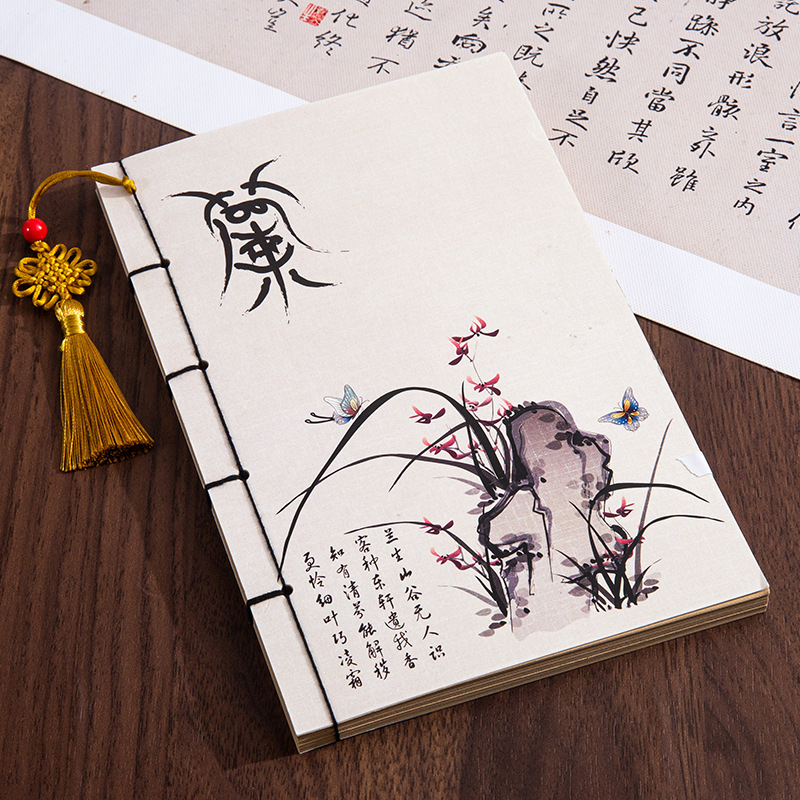 蘭
兰生山谷无人识
客种东轩遗我香
知有清芬能解秽
更怜细叶巧凌霜
言一室之內
放浪形骸之外雖
躁不同當其欣
己快然自足不
所之既
矣向
猶不
化終